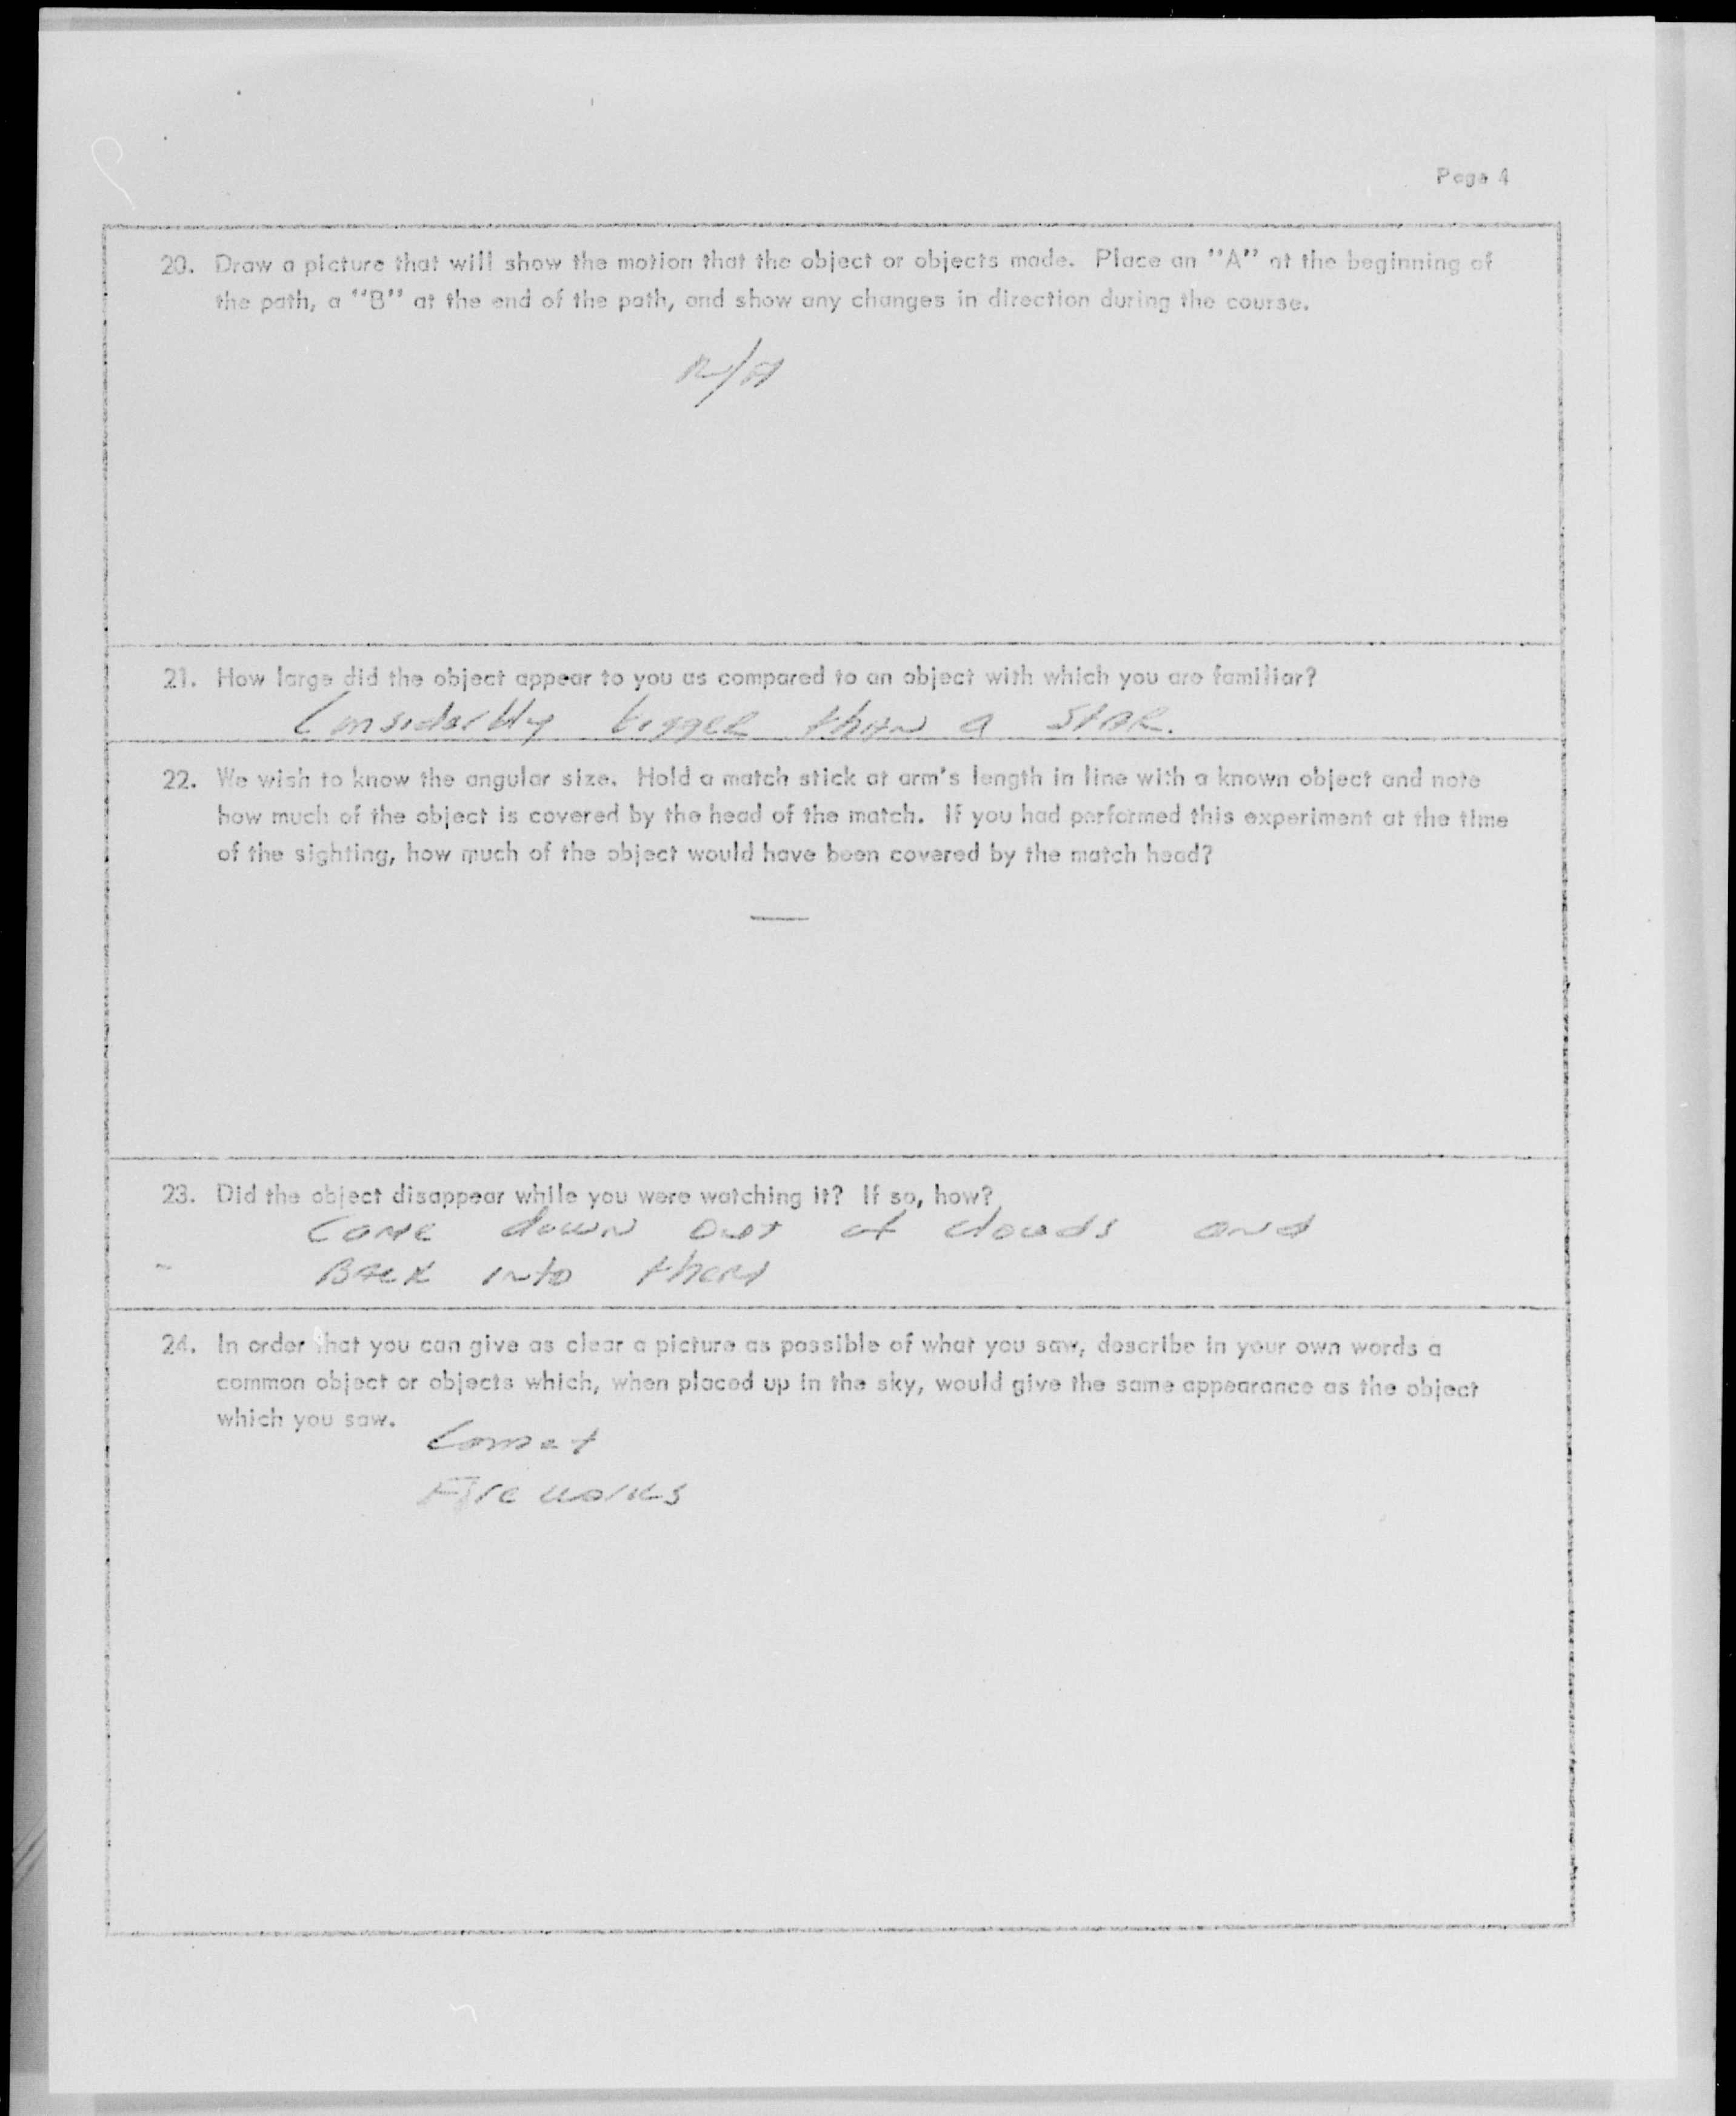 Page 4
20. Draw a picture that will show the motion that the object or objects made. Place an "A" at the beginning of
the path, a "B" at the end of the path, and show any changes in direction during the course.
N/A
21. How large did the object appear to you as compared to an object with which you are familiar?
Considerbly bigger than a STAR.
22. We wish to know the angular size. Hold a match stick at arm's length in line with a known object and note
how much of the object is covered by the head of the match. If you had performed this experiment at the time
of the sighting, how much of the object would have been covered by the match head?
—
23. Did the object disappear while you were watching it? If so, how?
Came down out of clouds and
Back into them
24. In order that you can give as clear a picture as possible of what you saw, describe in your own words a
common object or objects which, when placed up in the sky, would give the same appearance as the object
which you saw.
Comet
Fire works